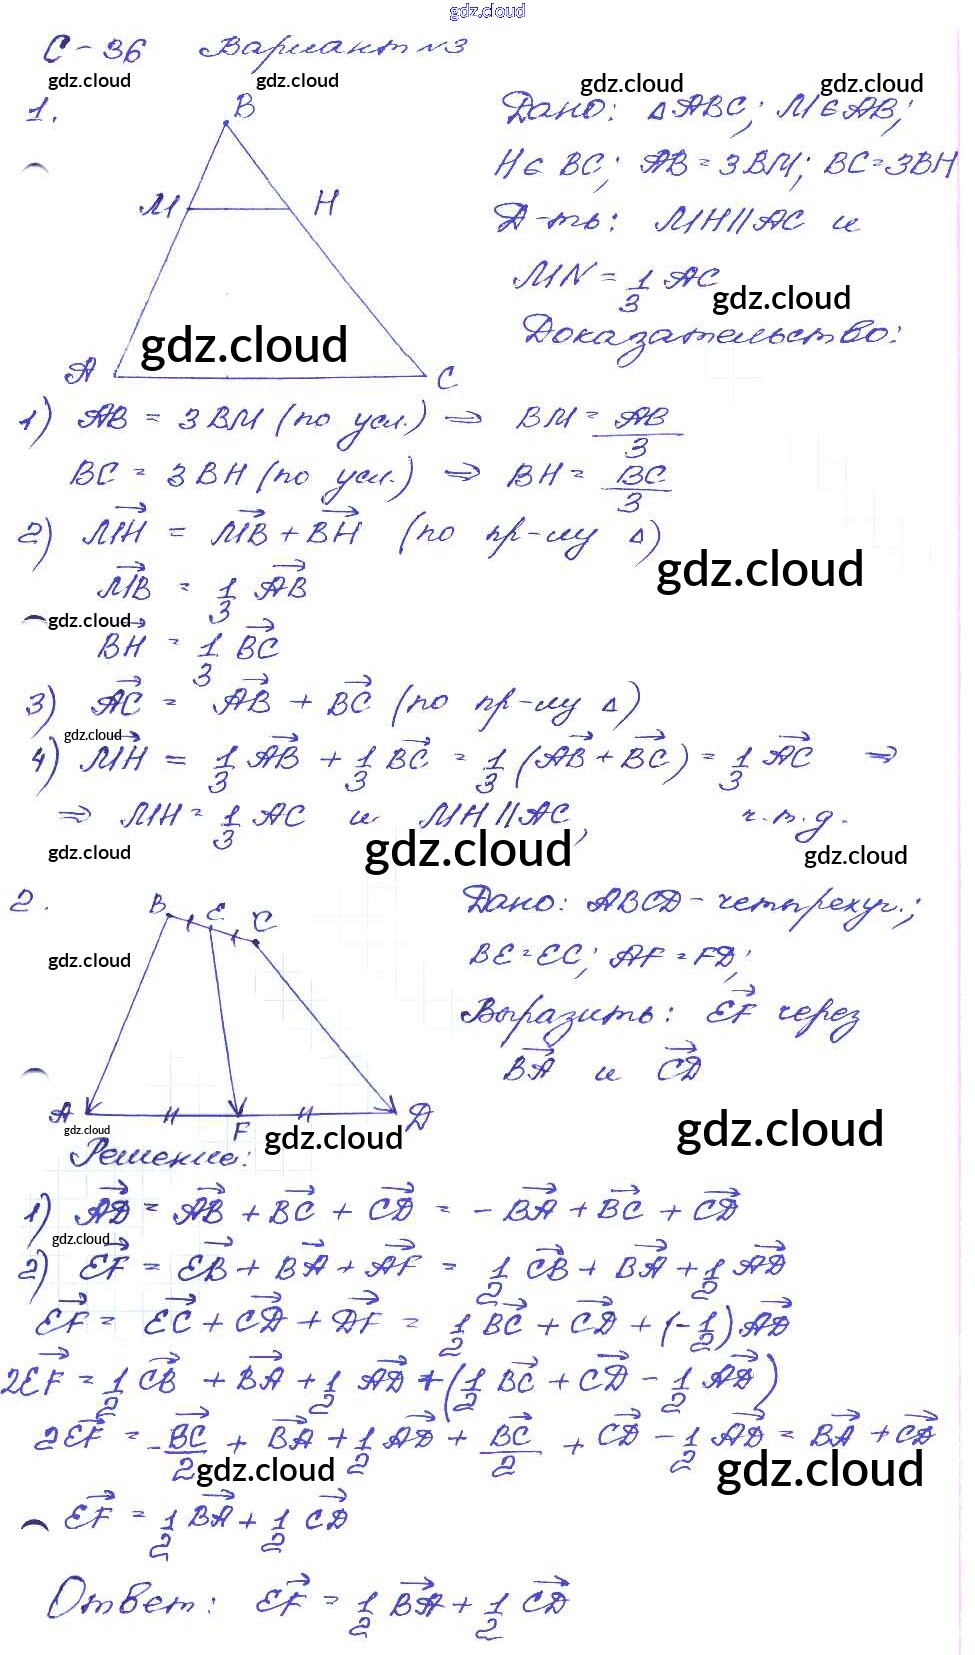 gdz.cloud
С-36 Вариант №3
gdz.cloud gdz.cloud gdz.cloud gdz.cloud
1.
B
M H
A C
gdz.cloud
Дано: △ABC; M∈AB;
H∈BC; AB=3BM; BC=3BH
Д-ть: MH||AC и
MN = 1/3 AC
gdz.cloud
Доказательство:
1) AB = 3BM (по усл.) ⇒ BM = AB/3
BC = 3BH (по усл.) ⇒ BH = BC/3
2) MH→ = MB→ + BH→ (по пр-лу △)
gdz.cloud
MB→ = 1/3 AB→
gdz.cloud
BH→ = 1/3 BC→
3) AC→ = AB→ + BC→ (по пр-лу △)
gdz.cloud
4) MH→ = 1/3 AB→ + 1/3 BC→ = 1/3 (AB→ + BC→) = 1/3 AC→ ⇒
⇒ MH = 1/3 AC и MH||AC, ч.т.д.
gdz.cloud gdz.cloud gdz.cloud
2.
B E C
gdz.cloud
A F D
gdz.cloud gdz.cloud gdz.cloud
Дано: ABCD - четырехуг.;
BE=EC; AF=FD;
Выразить: EF→ через
BA→ и CD→
Решение:
1) AD→ = AB→ + BC→ + CD→ = -BA→ + BC→ + CD→
gdz.cloud
2) EF→ = EB→ + BA→ + AF→ = 1/2 CB→ + BA→ + 1/2 AD→
EF→ = EC→ + CD→ + DF→ = 1/2 BC→ + CD→ + (-1/2) AD→
2EF→ = 1/2 CB→ + BA→ + 1/2 AD→ + (1/2 BC→ + CD→ - 1/2 AD→)
2EF→ = -BC→/2 + BA→ + 1/2 AD→ + BC→/2 + CD→ - 1/2 AD→ = BA→ + CD→
gdz.cloud gdz.cloud
EF→ = 1/2 BA→ + 1/2 CD→
Ответ: EF→ = 1/2 BA→ + 1/2 CD→